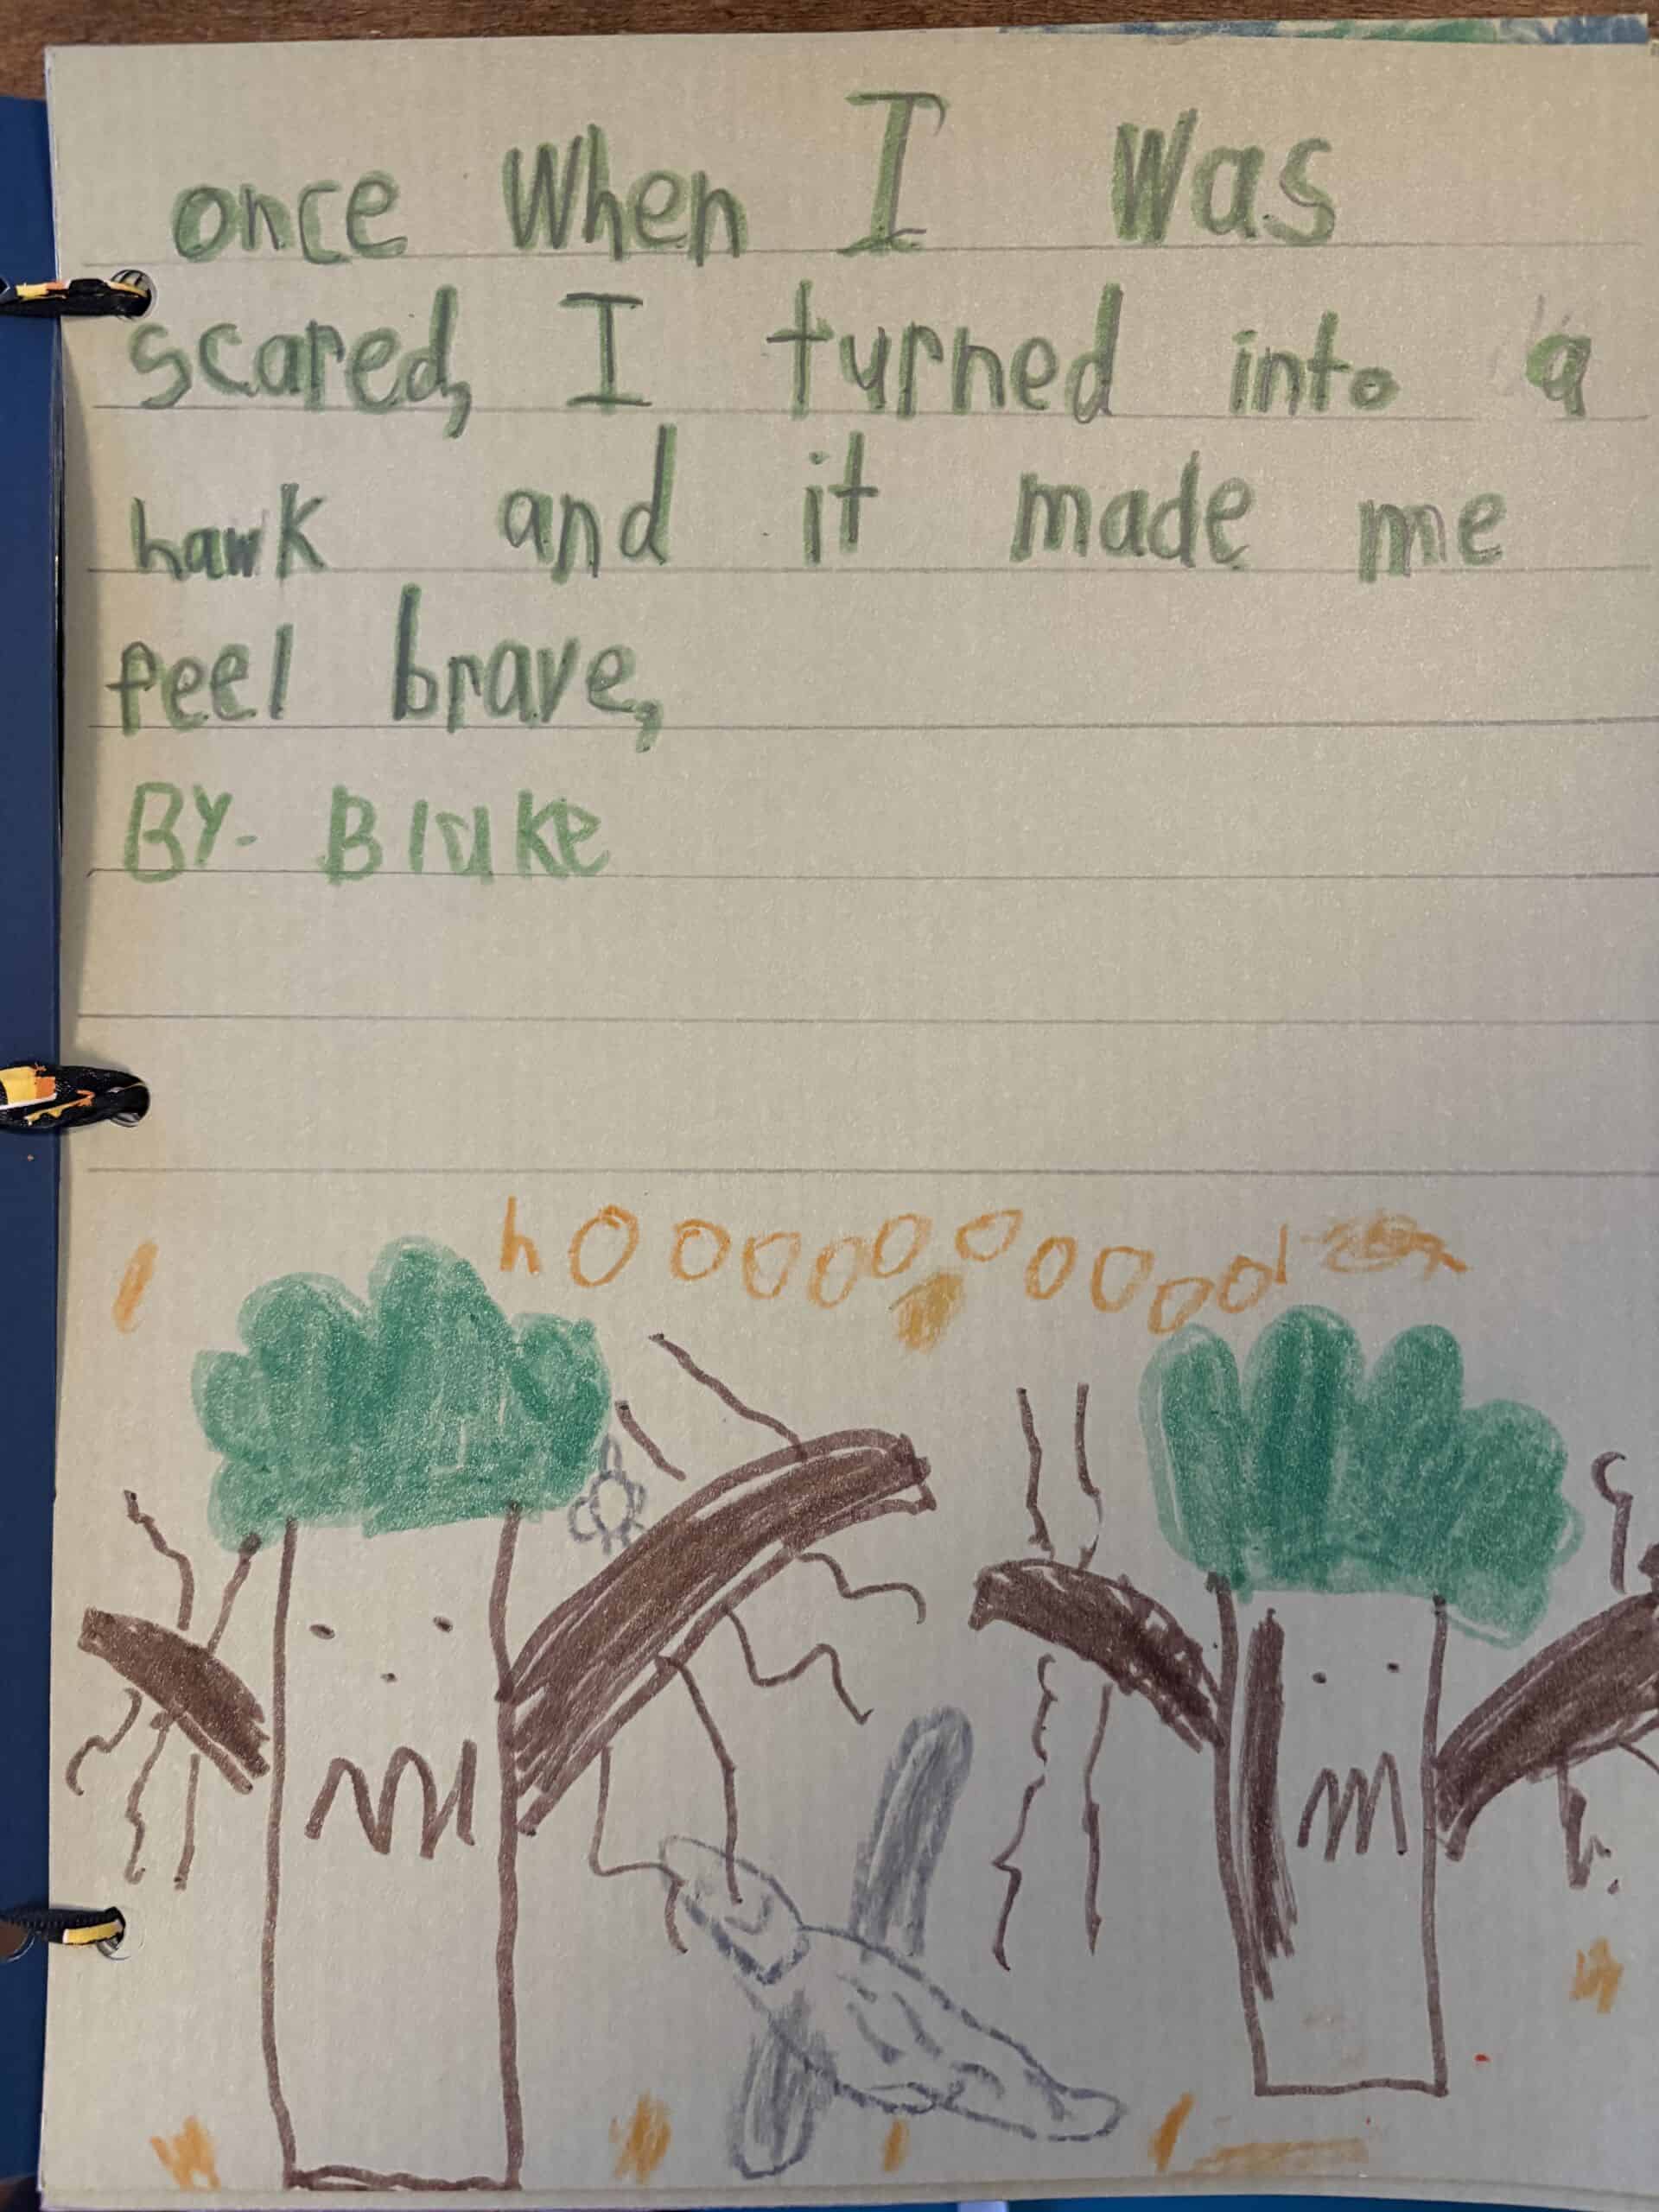 once when I was
scared, I turned into a
hawk and it made me
feel brave,
BY. Blake
hooooooooooo!